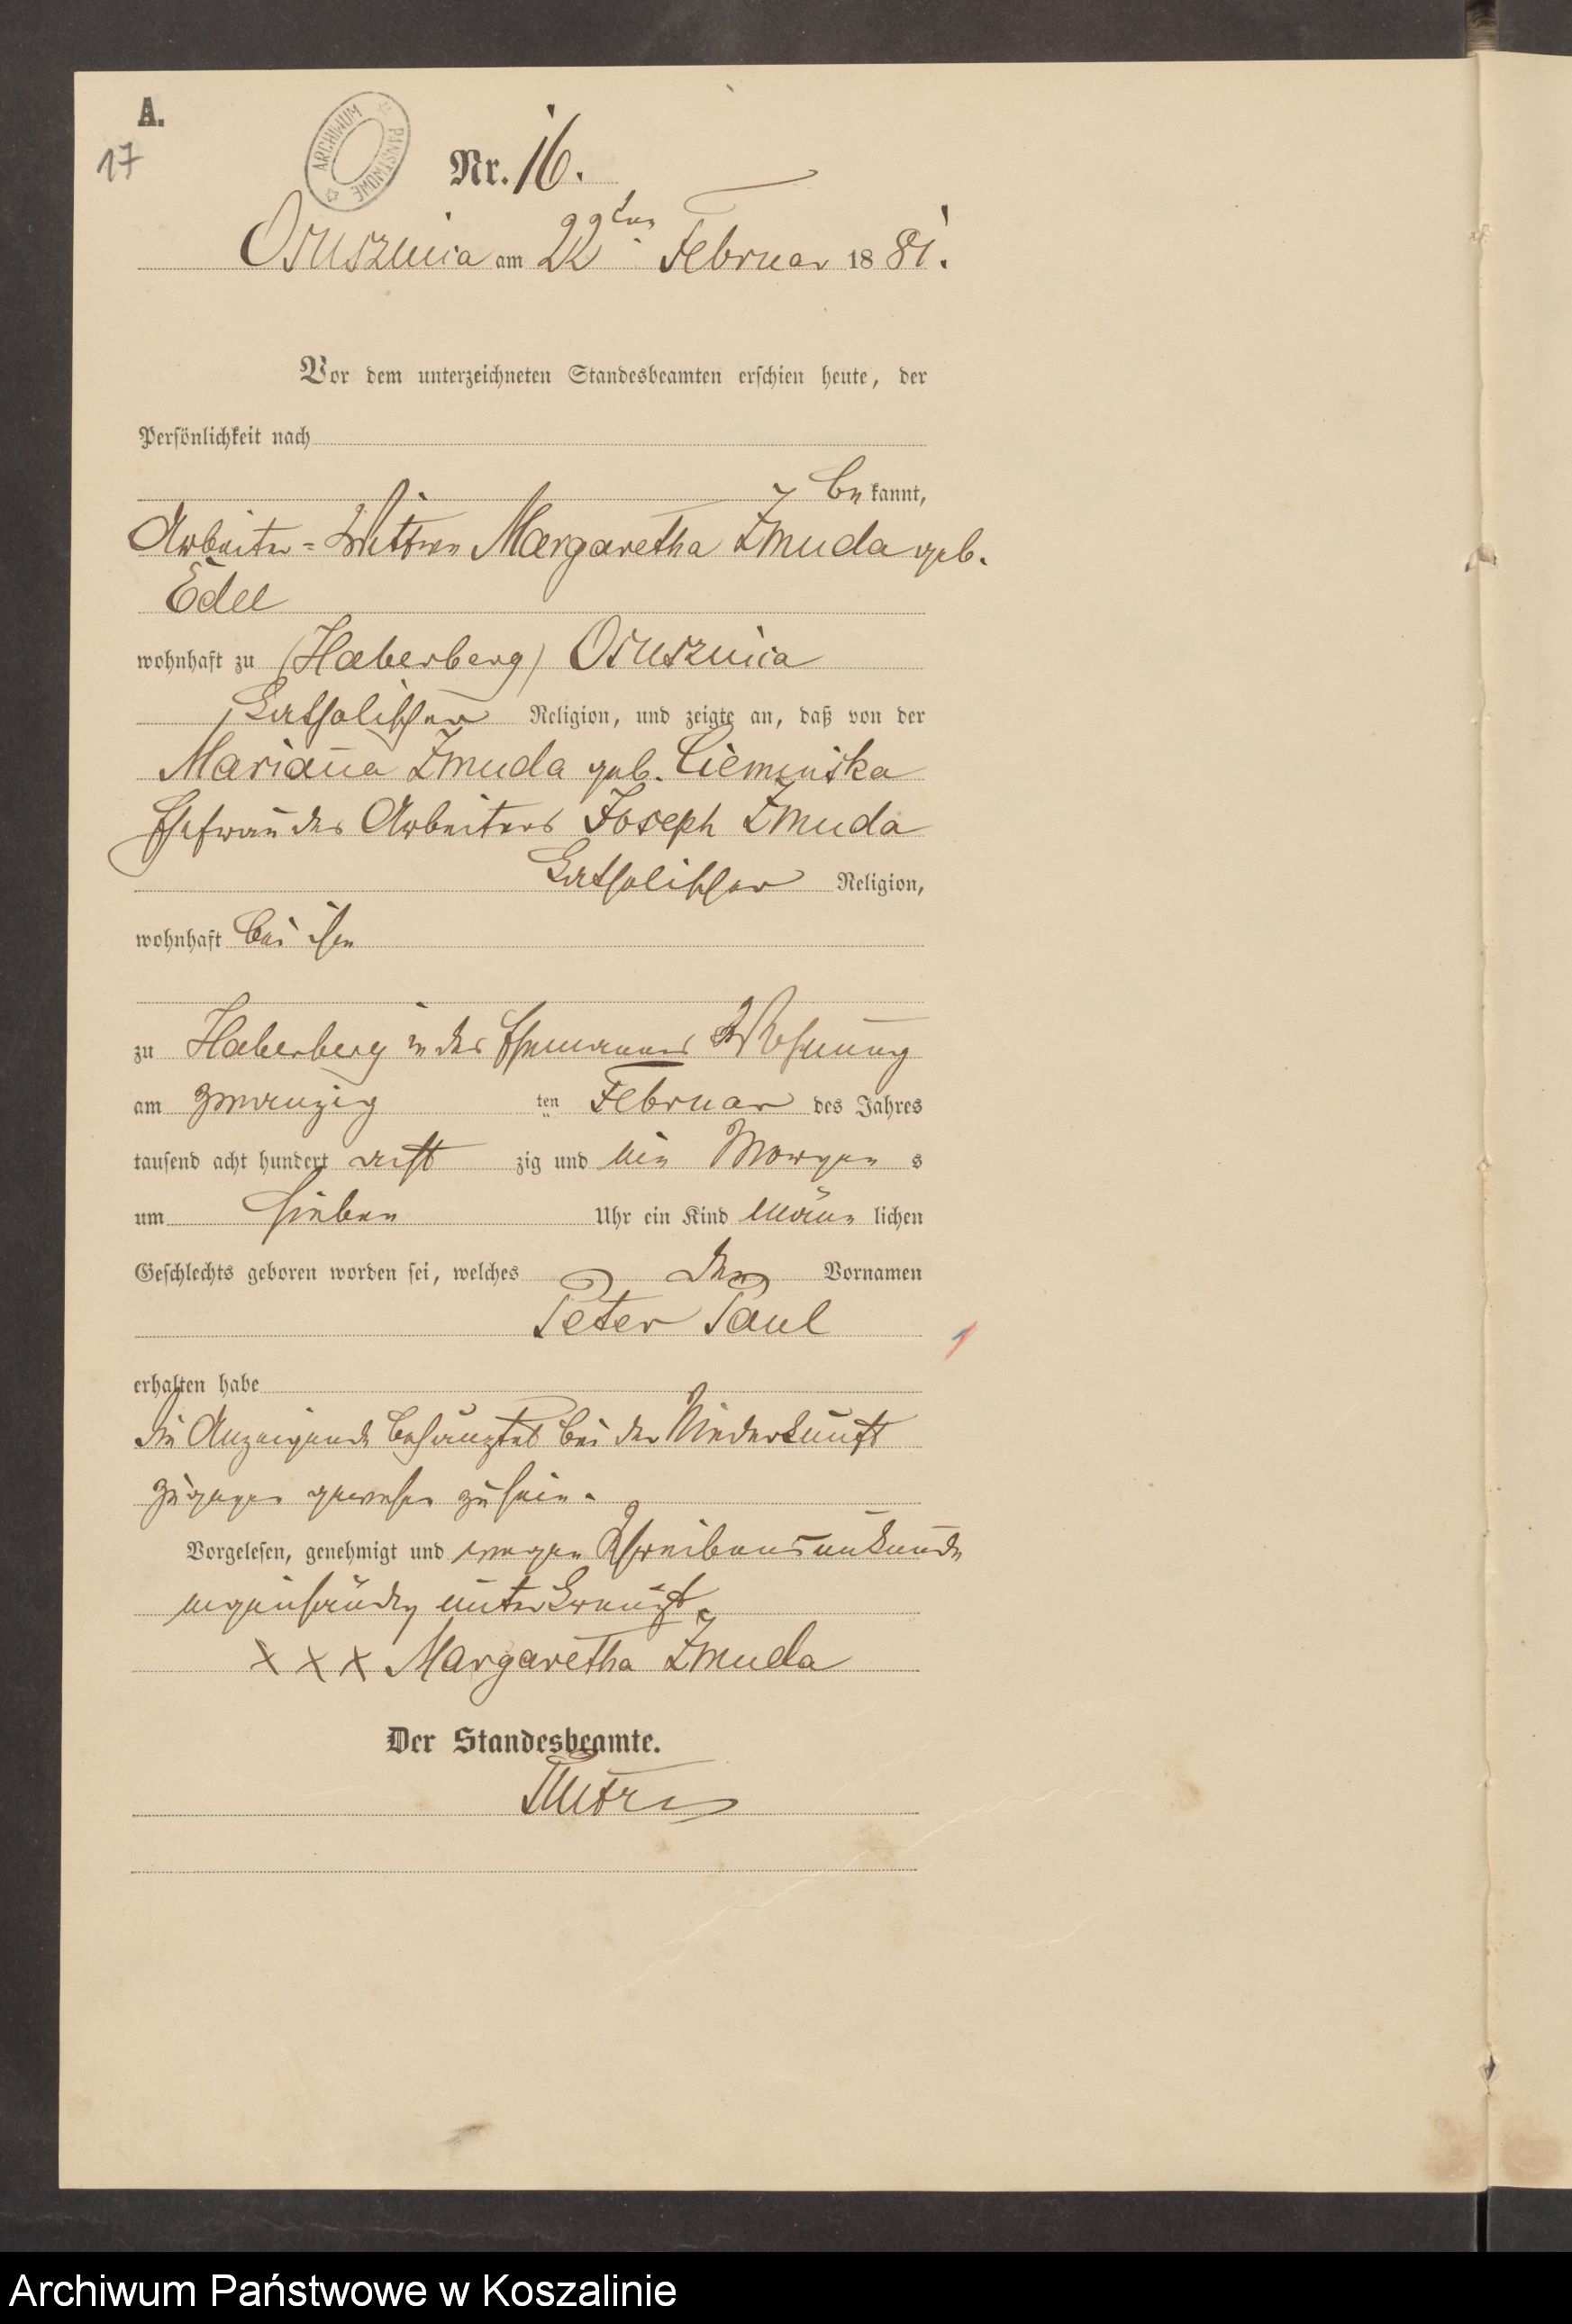 A.
17
ARCHIWUM PAŃSTWOWE
Nr. 16.
Osusznica am 22ten Februar 1881.
Vor dem unterzeichneten Standesbeamten erschien heute, der
Persönlichkeit nach
bekannt,
Arbeiter=Wittwe Margaretha Żmuda geb.
Edel
wohnhaft zu (Haberberg) Osusznica
katholischer Religion, und zeigte an, daß von der
Marianna Żmuda geb. Ciemińska
Ehefrau des Arbeiters Joseph Żmuda
katholischer Religion,
wohnhaft bei ihm
zu Haberberg in des Ehemannes Wohnung
am zwanzig ten Februar des Jahres
tausend acht hundert acht zig und ein Morgen s
um sieben Uhr ein Kind männ lichen
Geschlechts geboren worden sei, welches den Vornamen
Peter Paul
erhalten habe
die Anzeigende behauptet bei der Niederkunft
zugegen gewesen zu sein.
Vorgelesen, genehmigt und wegen Schreibensunkunde
eigenhändig unterkreuzt.
x x x Margaretha Żmuda
Der Standesbeamte.
Archiwum Państwowe w Koszalinie